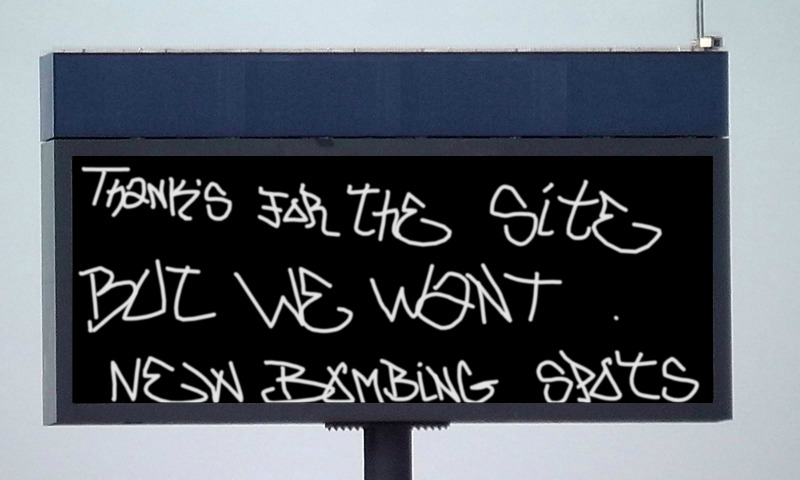 THANKS FOR THE SITE
BUT WE WANT .
NEW BOMBING SPOTS